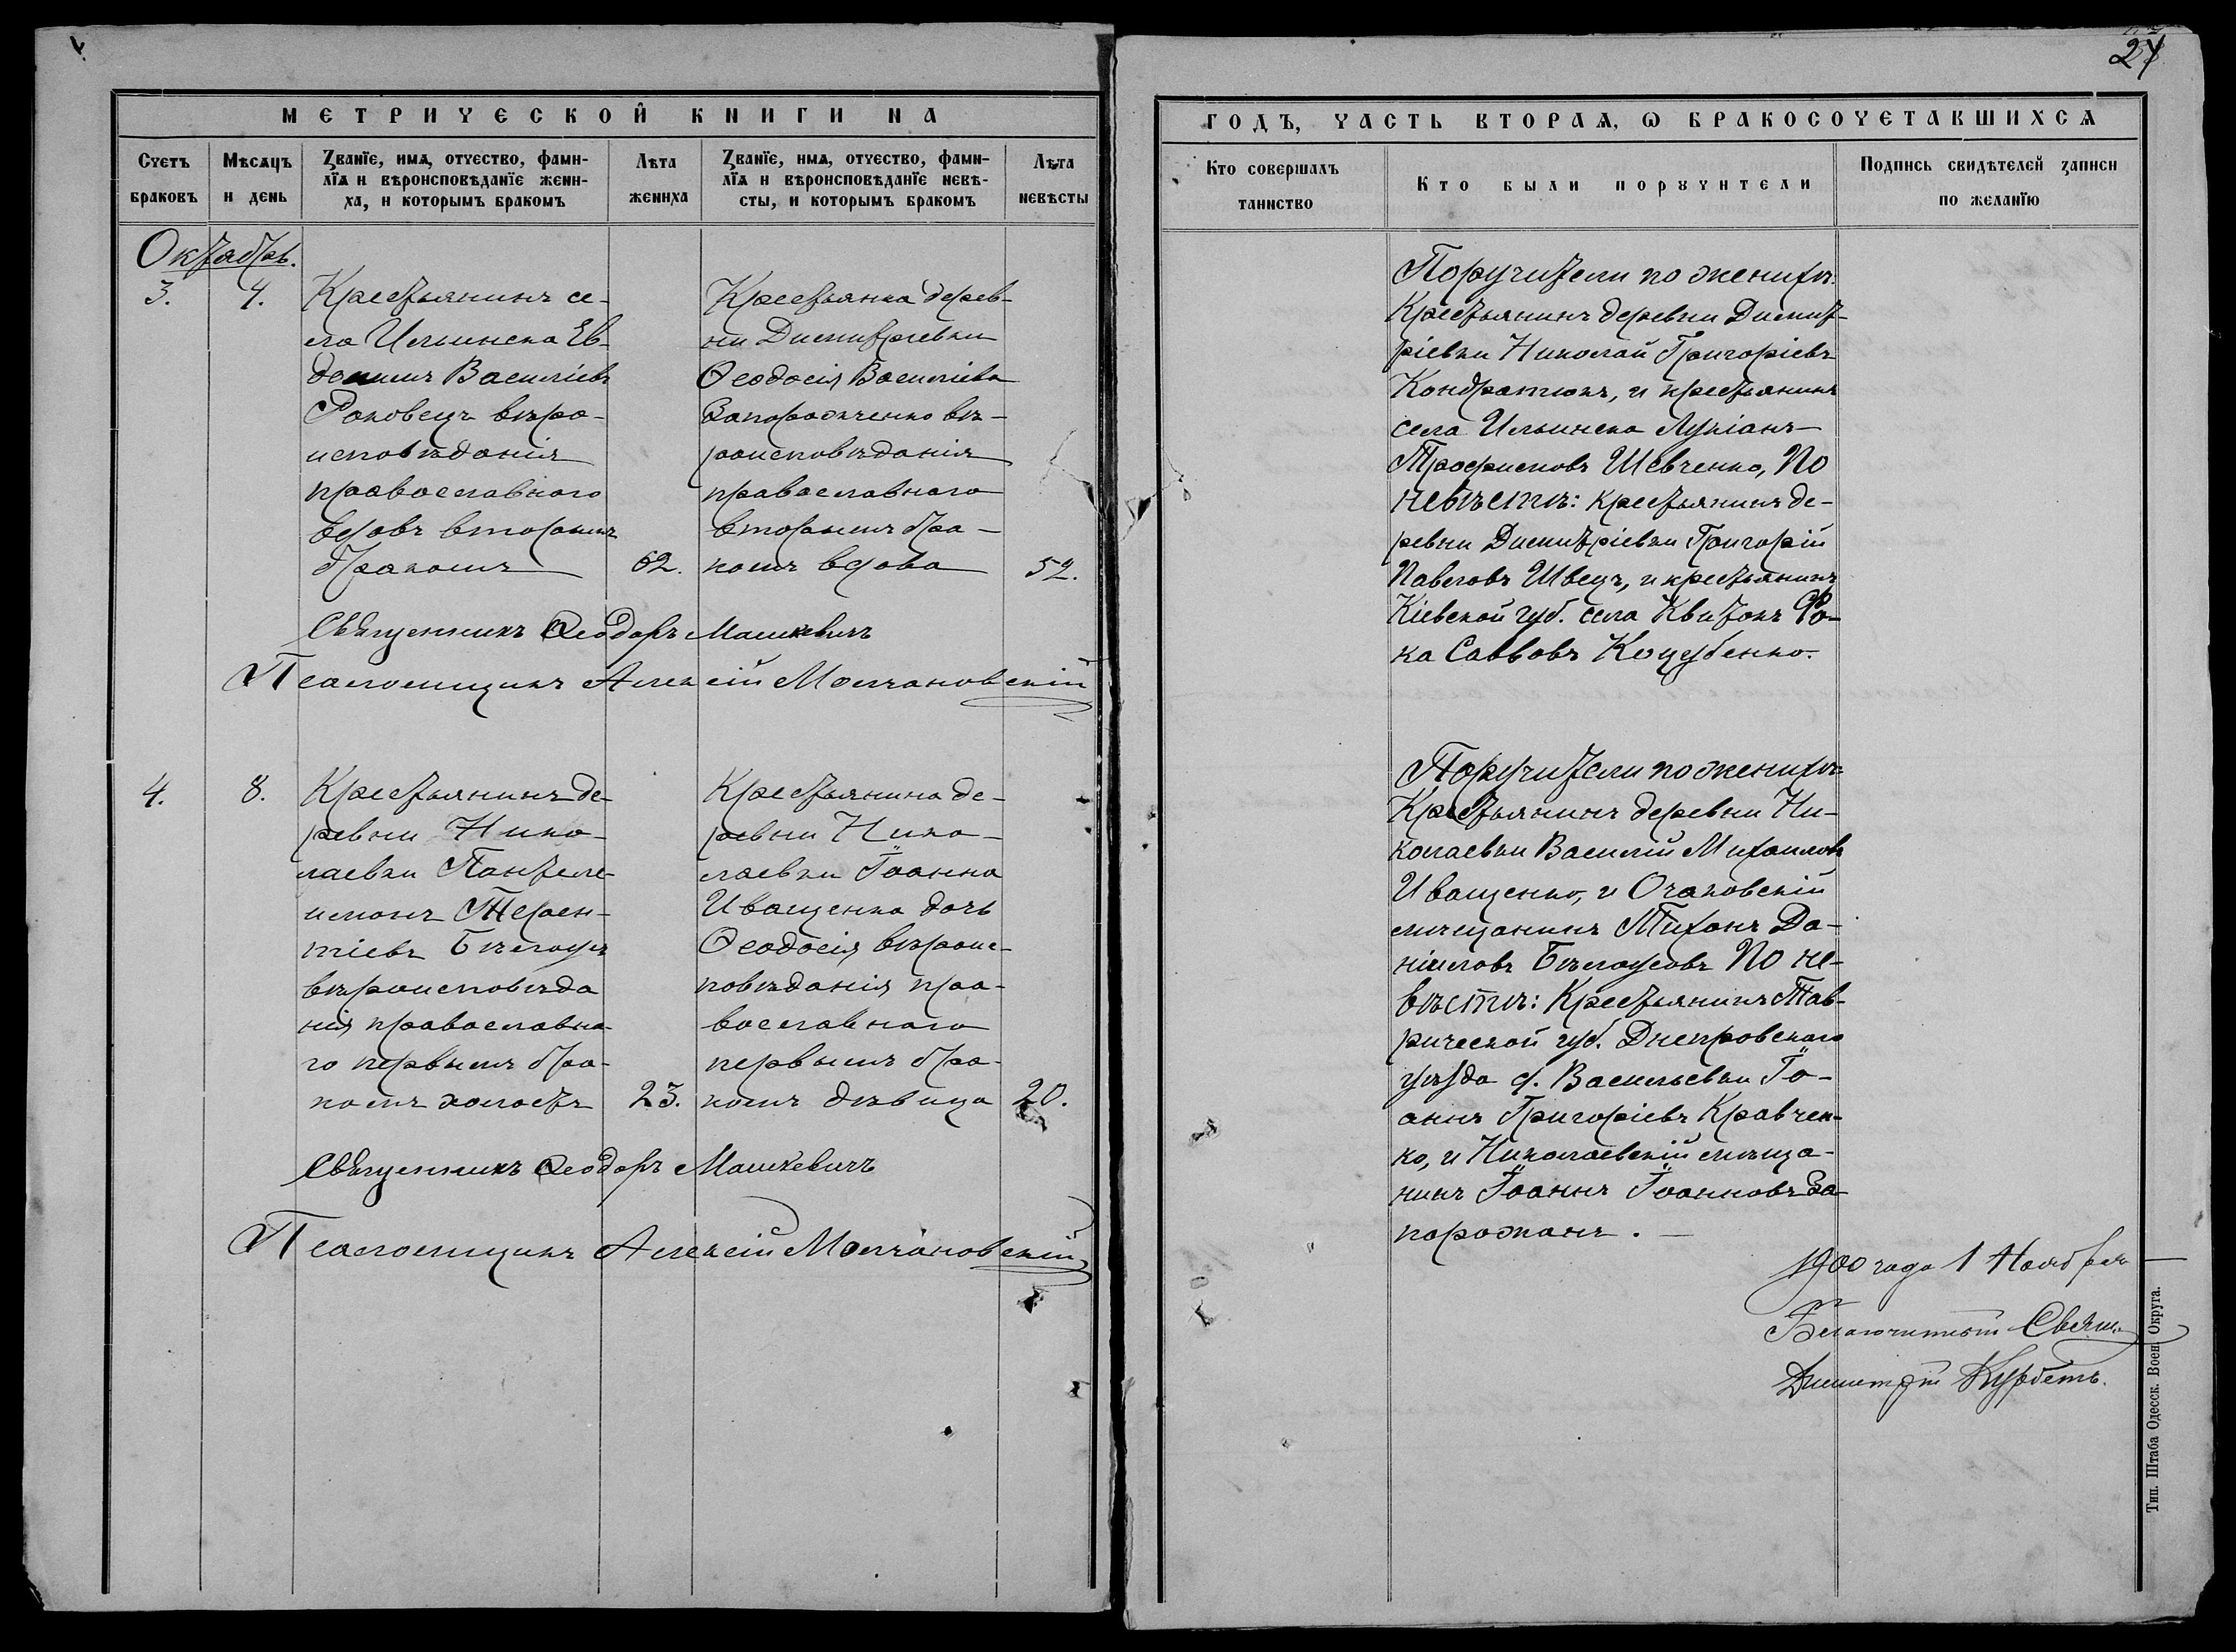 24
МЕТРИЧЕСКОЙ КНИГИ НА
Счетъ браковъ
Мѣсяцъ и день
Званїе, имя, отчество, фами-
лїя и вѣроисповѣданїе жени-
ха, и которымъ бракомъ
Лѣта жениха
Званїе, имя, отчество, фами-
лїя и вѣроисповѣданїе невѣ-
сты, и которымъ бракомъ
Лѣта невѣсты
Октябрь.
3.
4.
Крестьянинъ се-
ла Ильинска Ев-
докимъ Василіевъ
Раковецъ вѣро-
исповѣданія
православнаго
вдовъ вторымъ
бракомъ
62.
Крестьянка дерев-
ни Димитріевки
Ѳеодосія Василіева
Запорожченко вѣ-
роисповѣданія
православнаго
вторымъ бра-
комъ вдова
52.
Священникъ Ѳеодоръ Машкевичъ
Псаломщикъ Алексій Молчановскій
4.
8.
Крестьянинъ де-
ревни Нико-
лаевки Пантеле-
имонъ Терен-
тіевъ Бѣлоусъ
вѣроисповѣда
нія православна-
го первымъ бра-
комъ холостъ
23.
Крестьянина де-
ревни Нико-
лаевки Іоанна
Иващенка дочь
Ѳеодосія вѣроис-
повѣданія пра-
вославнаго
первымъ бра-
комъ дѣвица
20.
Священникъ Ѳеодоръ Машкевичъ
Псаломщикъ Алексій Молчановскій
ГОДЪ, ЧАСТЬ ВТОРАЯ, Ѡ БРАКОСОЧЕТАВШИХСЯ
Кто совершалъ
таинство
Кто были поручители
Подпись свидѣтелей записи
по желанїю
Поручители по женихѣ:
Крестьянинъ деревни Димит-
ріевки Николай Григоріевъ
Кондратюкъ, и крестьянинъ
села Ильинска Лукіанъ
Трофимовъ Шевченко, По
невѣстѣ: крестьянинъ де-
ревни Димитріевки Григорій
Павловъ Швецъ, и крестьянинъ
Кіевской губ. села Квитокъ Фо-
ка Саввовъ Коцубенко.
Поручители по женихѣ:
Крестьянинъ деревни Ни-
колаевки Василій Михаиловъ
Иващенко, и Очаковскій
мѣщанинъ Тихонъ Да-
ніиловъ Бѣлоусовъ По не-
вѣстѣ: Крестьянинъ Тав-
рической губ. Днепровскаго
уѣзда с. Васильевки Іо-
аннъ Григоріевъ Кравчен-
ко, и Николаевскій мѣща-
нинъ Іоаннъ Іоанновъ За-
порожанъ.
1900 года 1 Ноября
Благочинный Свящ.
Димитрій Курбетъ.
Тип. Штаба Одесск. Воен. Округа.